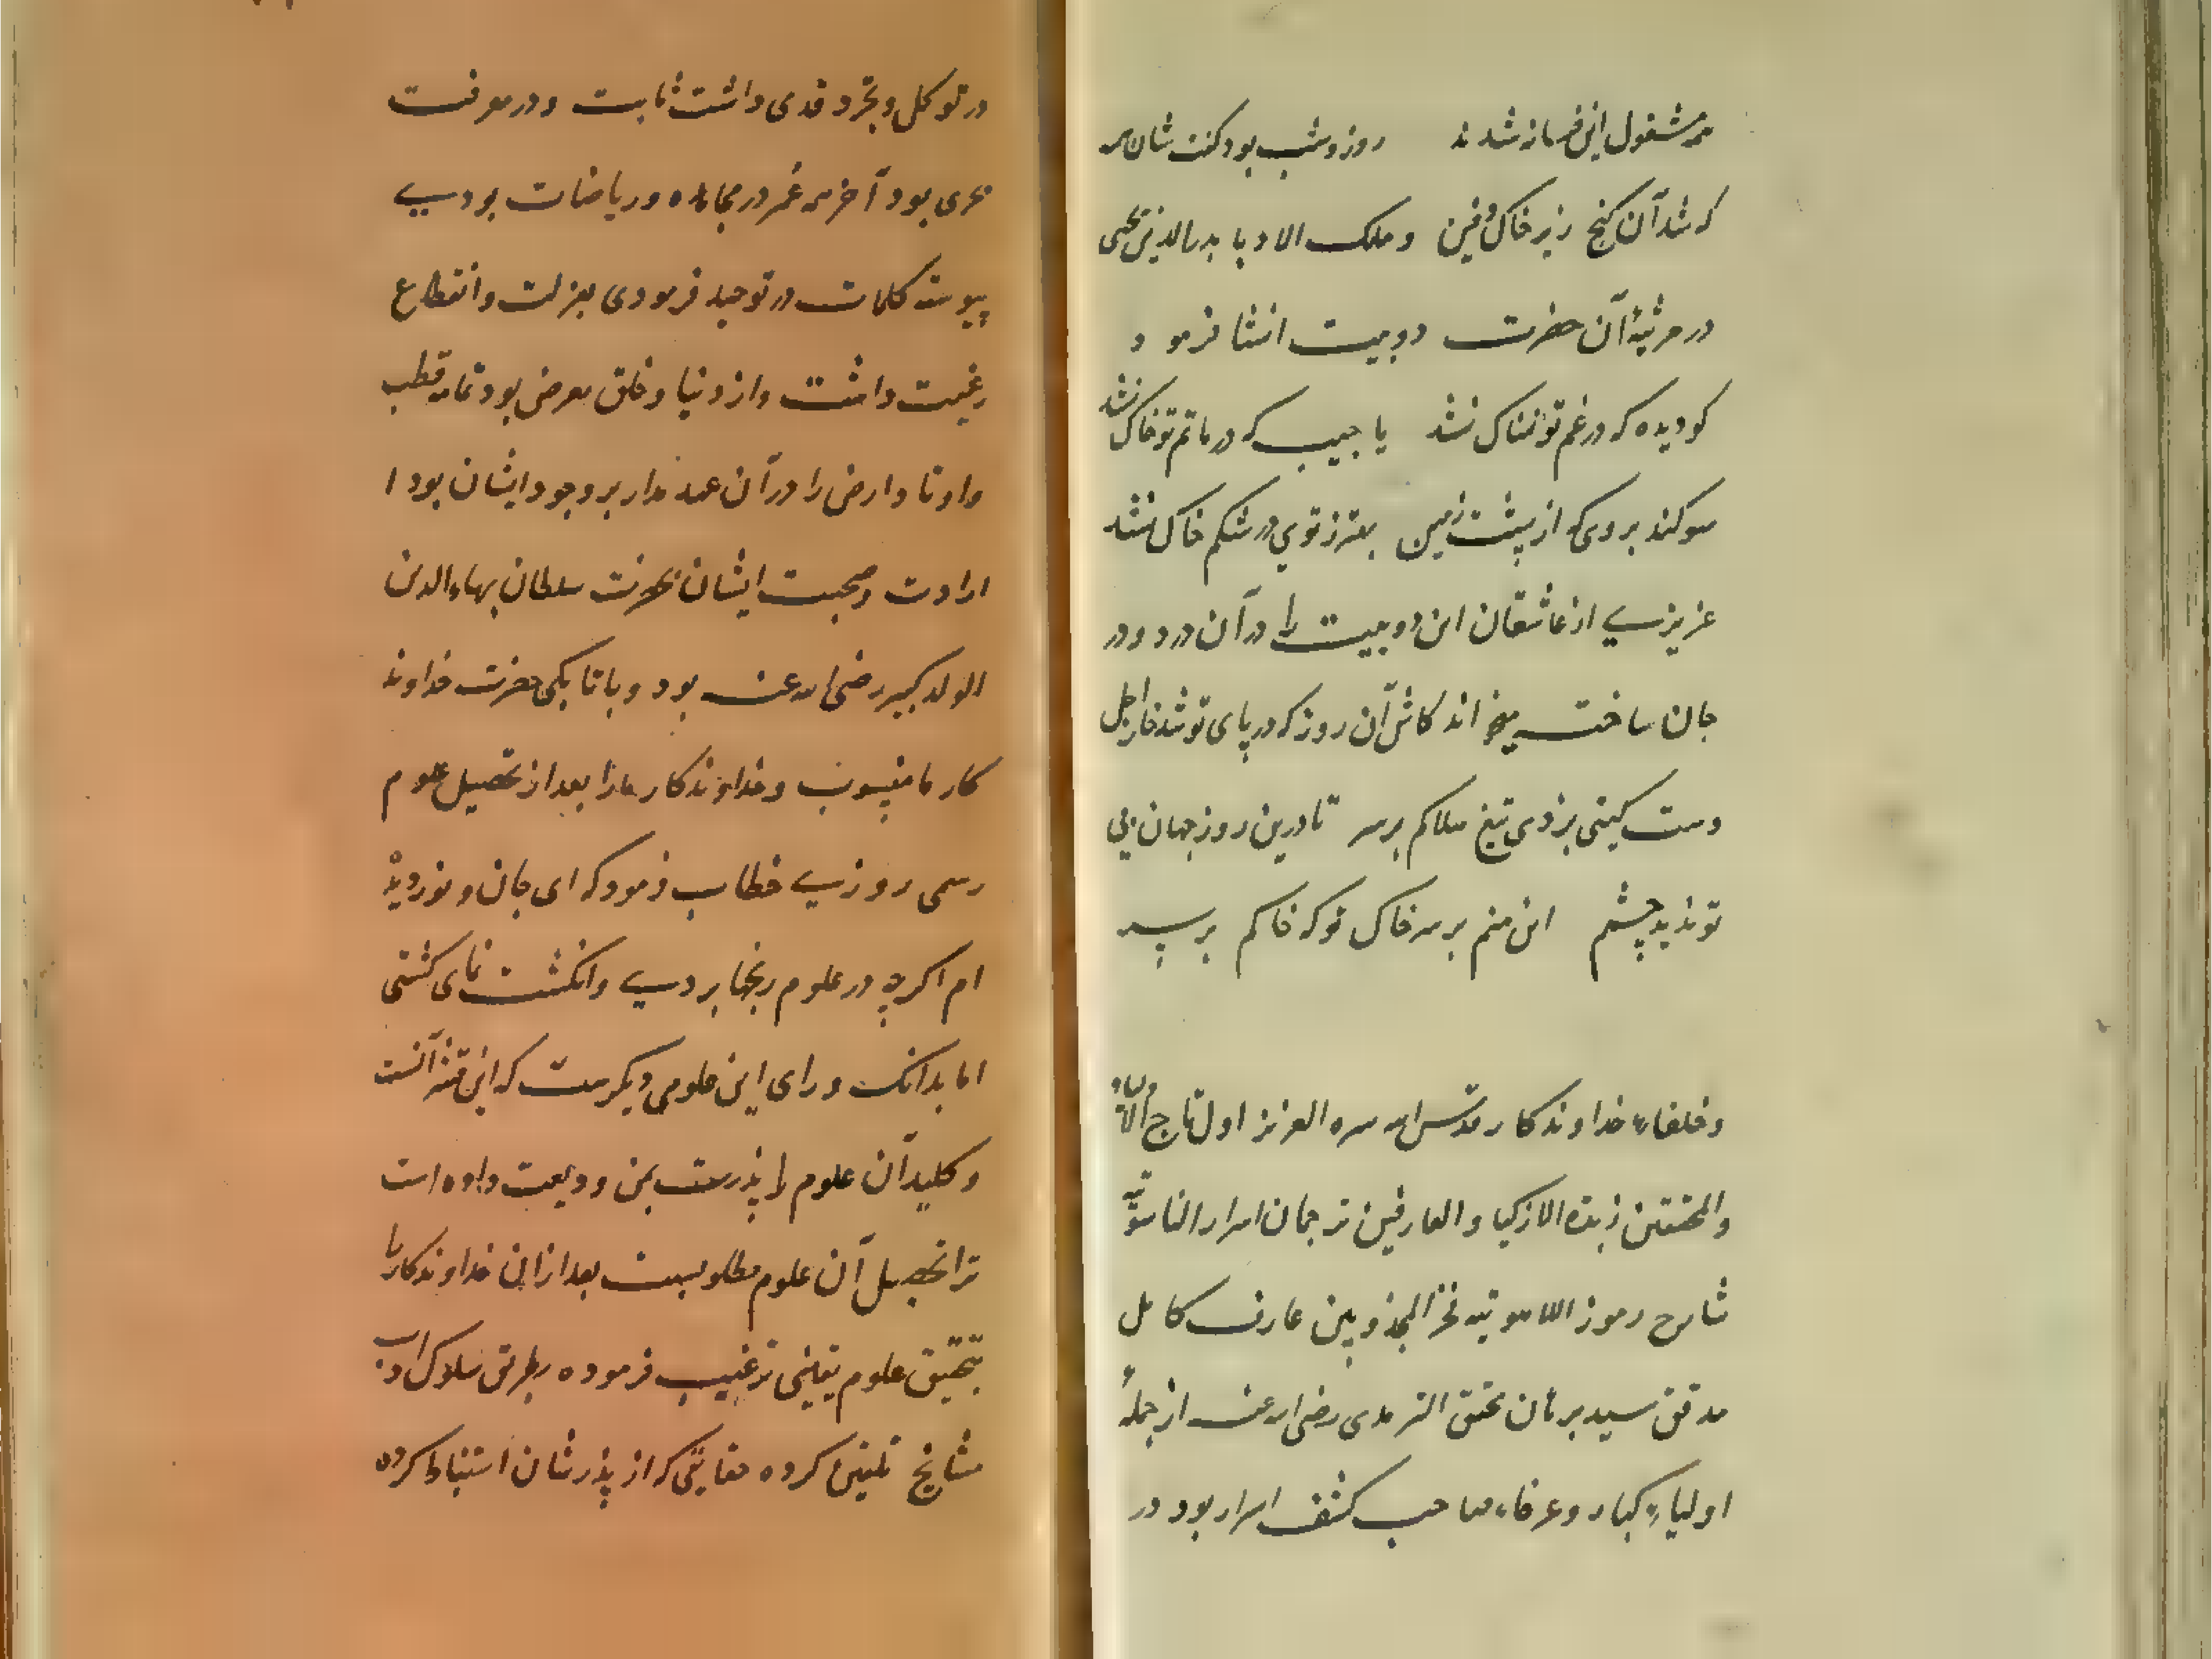 همه مشغول این فسانه شدند روز و شب بود گفت شان همه
که شد آن گنج زیر خاک دفین و ملک الادبا بدرالدین یحیی
در مرثیۀ آن حضرت دو بیت انشا فرمود
کو دیده که در غم تو نمناک نشد یا جیب که در ماتم تو خاک نشد
سوکند بروی که از پشت زمین بهتر ز توی در شکم خاک نشد
عزیزی از عاشقان این دو بیت را در آن درد ورد
جان ساخته میخواند کاش آن روز که در پای تو شد خار اجل
دست کیتی بزدی تیغ هلاکم بر سر تا درین روز جهان بی
تو ندیدی چشمم این منم بر سر خاک تو که خاکم بر سر
وخلفاء خداوندکار قدس الله سره العزیز اول تاج الاولیاء
والمحققین زبدة الازکیا والعارفین ترجمان اسرار الناسوتیه
شارح رموز اللاهوتیه فخر المجذوبین عارف کامل
مدقق سید برهان محقق الترمدی رضی الله عنه از جملۀ
اولیاء کبار و عرفاء صاحب کشف اسرار بود در
در توکل و تجرد قدمی داشت ثابت و در معرفت
بحری بود آخر همه عمر در مجاهده و ریاضات بودی
پیوسته کلمات در توحید فرمودی بعزلت و انقطاع
رغبت داشت و از دنیا و خلق معرض بود تمامه قطب
و اوتاد ارض را در آن عهد مدار بر وجود ایشان بود ا
ارادت و صحبت ایشان بحضرت سلطان بهاءالدین
الولد کبیر رضی الله عنه بود و باتابکی حضرت خداوند
کار ما منسوب و خداوندکار مارا بعد از تحصیل علوم
رسمی روزی خطاب فرمود که ای جان و نور دیدۀ
ام اکرچه در علوم رنجها بردی و انکشت نمای کشتی
اما بدانک ورای این علومی دیکرست که این قشر آنست
و کلید آن علوم را پذرست بمن ودیعت داده است
ترا تحصیل آن علوم مطلوبست بعد از این خداوندکار را
بتحقیق علوم یقینی ترغیب فرموده بطریق سلوک آداب
مشایخ تلقین کرده حقایقی که از پذرشان استنباط کرده